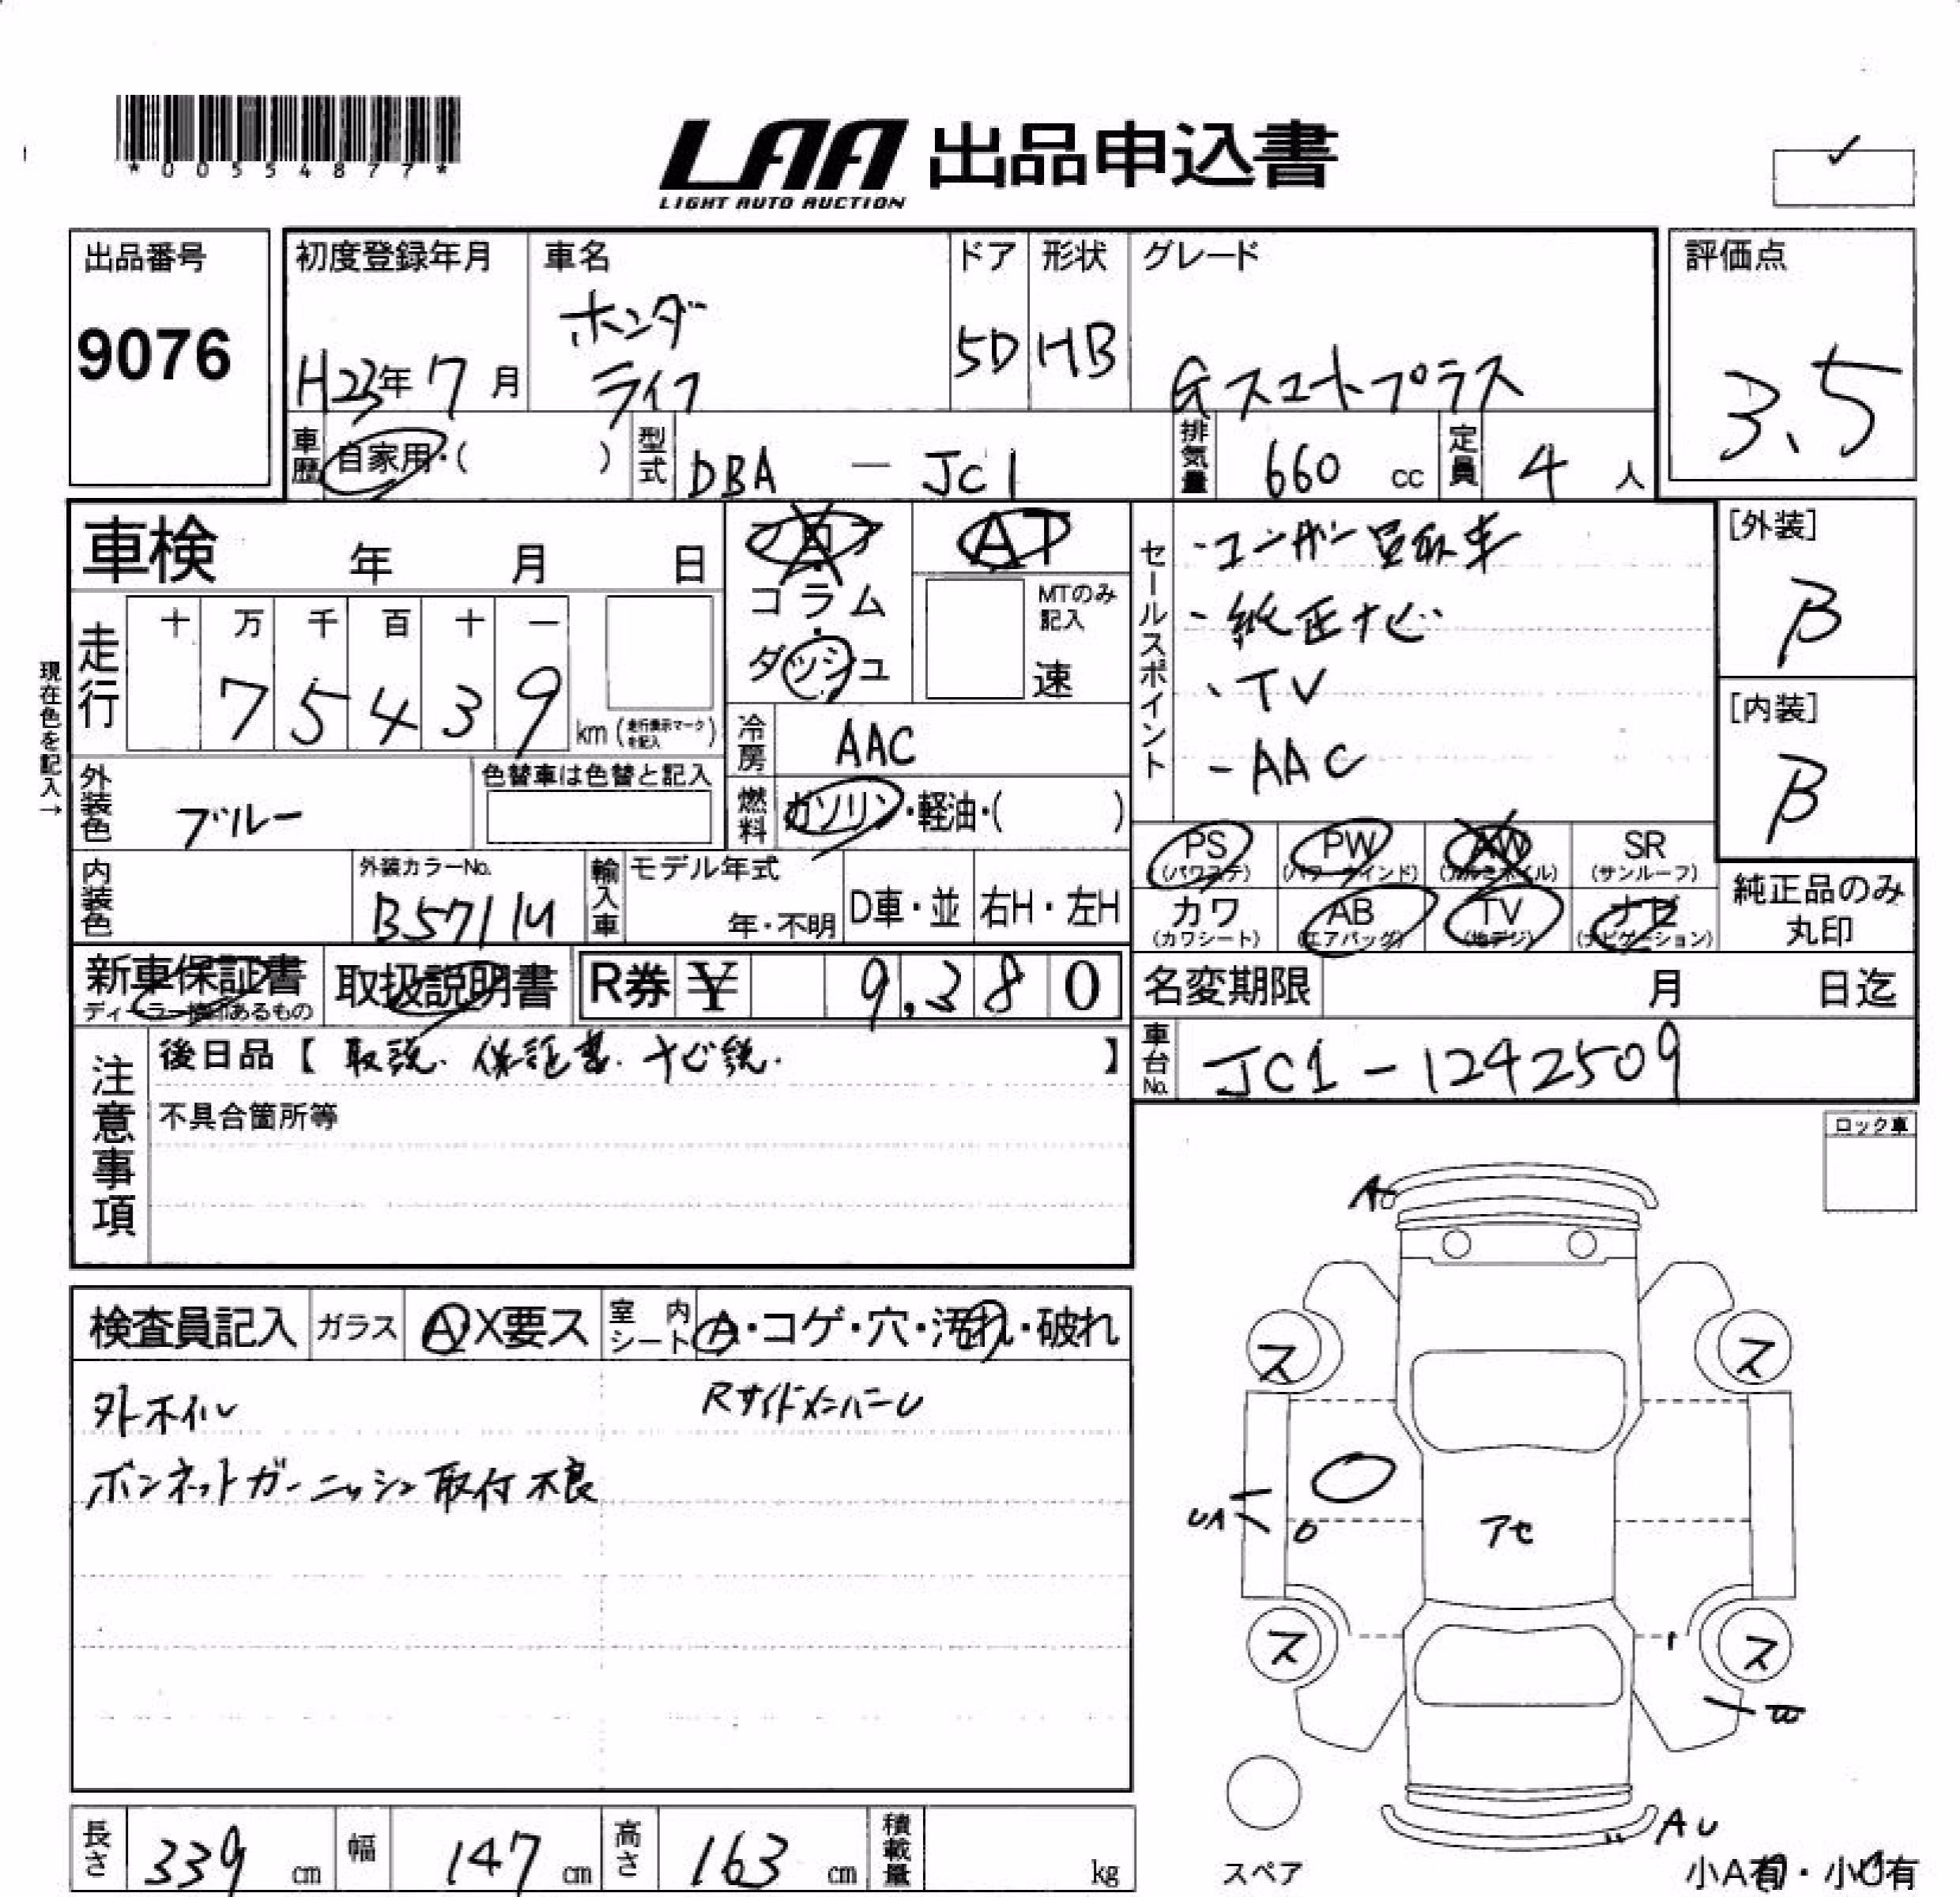 *00554877*
LAA 出品申込書
LIGHT AUTO AUCTION
出品番号
9076
初度登録年月
H23年7月
車名
ホンダ
ライフ
ドア
5D
形状
HB
グレード
Gスマートプラス
評価点
3.5
車歴
自家用・( )
型式
DBA — JC1
排気量
660 cc
定員
4 人
車検 年 月 日
フロア
コラム
ダッシュ
AT
MTのみ記入
速
セールスポイント
・ユーザー買取車
・純正ナビ
・TV
・AAC
[外装]
B
[内装]
B
現在色を記入→
走行
十 万 千 百 十 一
7 5 4 3 9
km (走行表示マークを記入)
冷房
AAC
外装色
ブルー
色替車は色替と記入
燃料
ガソリン・軽油・( )
PS (パワステ)
PW (パワーウインド)
AW (アルミホイル)
SR (サンルーフ)
内装色
外装カラーNo.
B571M
輸入車
モデル年式
年・不明
D車・並
右H・左H
カワ (カワシート)
AB (エアバッグ)
TV (地デジ)
ナビ (ナビゲーション)
純正品のみ
丸印
新車保証書
ディーラー捺印あるもの
取扱説明書
R券 ¥ 9,380
名変期限 月 日迄
注意事項
後日品【 取説. 保証書. ナビ説. 】
不具合箇所等
車台No.
JC1-1242509
ロック車
検査員記入
ガラス
A X要ス
室内シート
A・コゲ・穴・汚れ・破れ
外ホイル
RサイドメンバーU
ボンネットガーニッシュ取付不良
A
ス ス
UA
アセ
ス ス
AU
スペア
小A有・小U有
長さ 339 cm
幅 147 cm
高さ 163 cm
積載量 kg